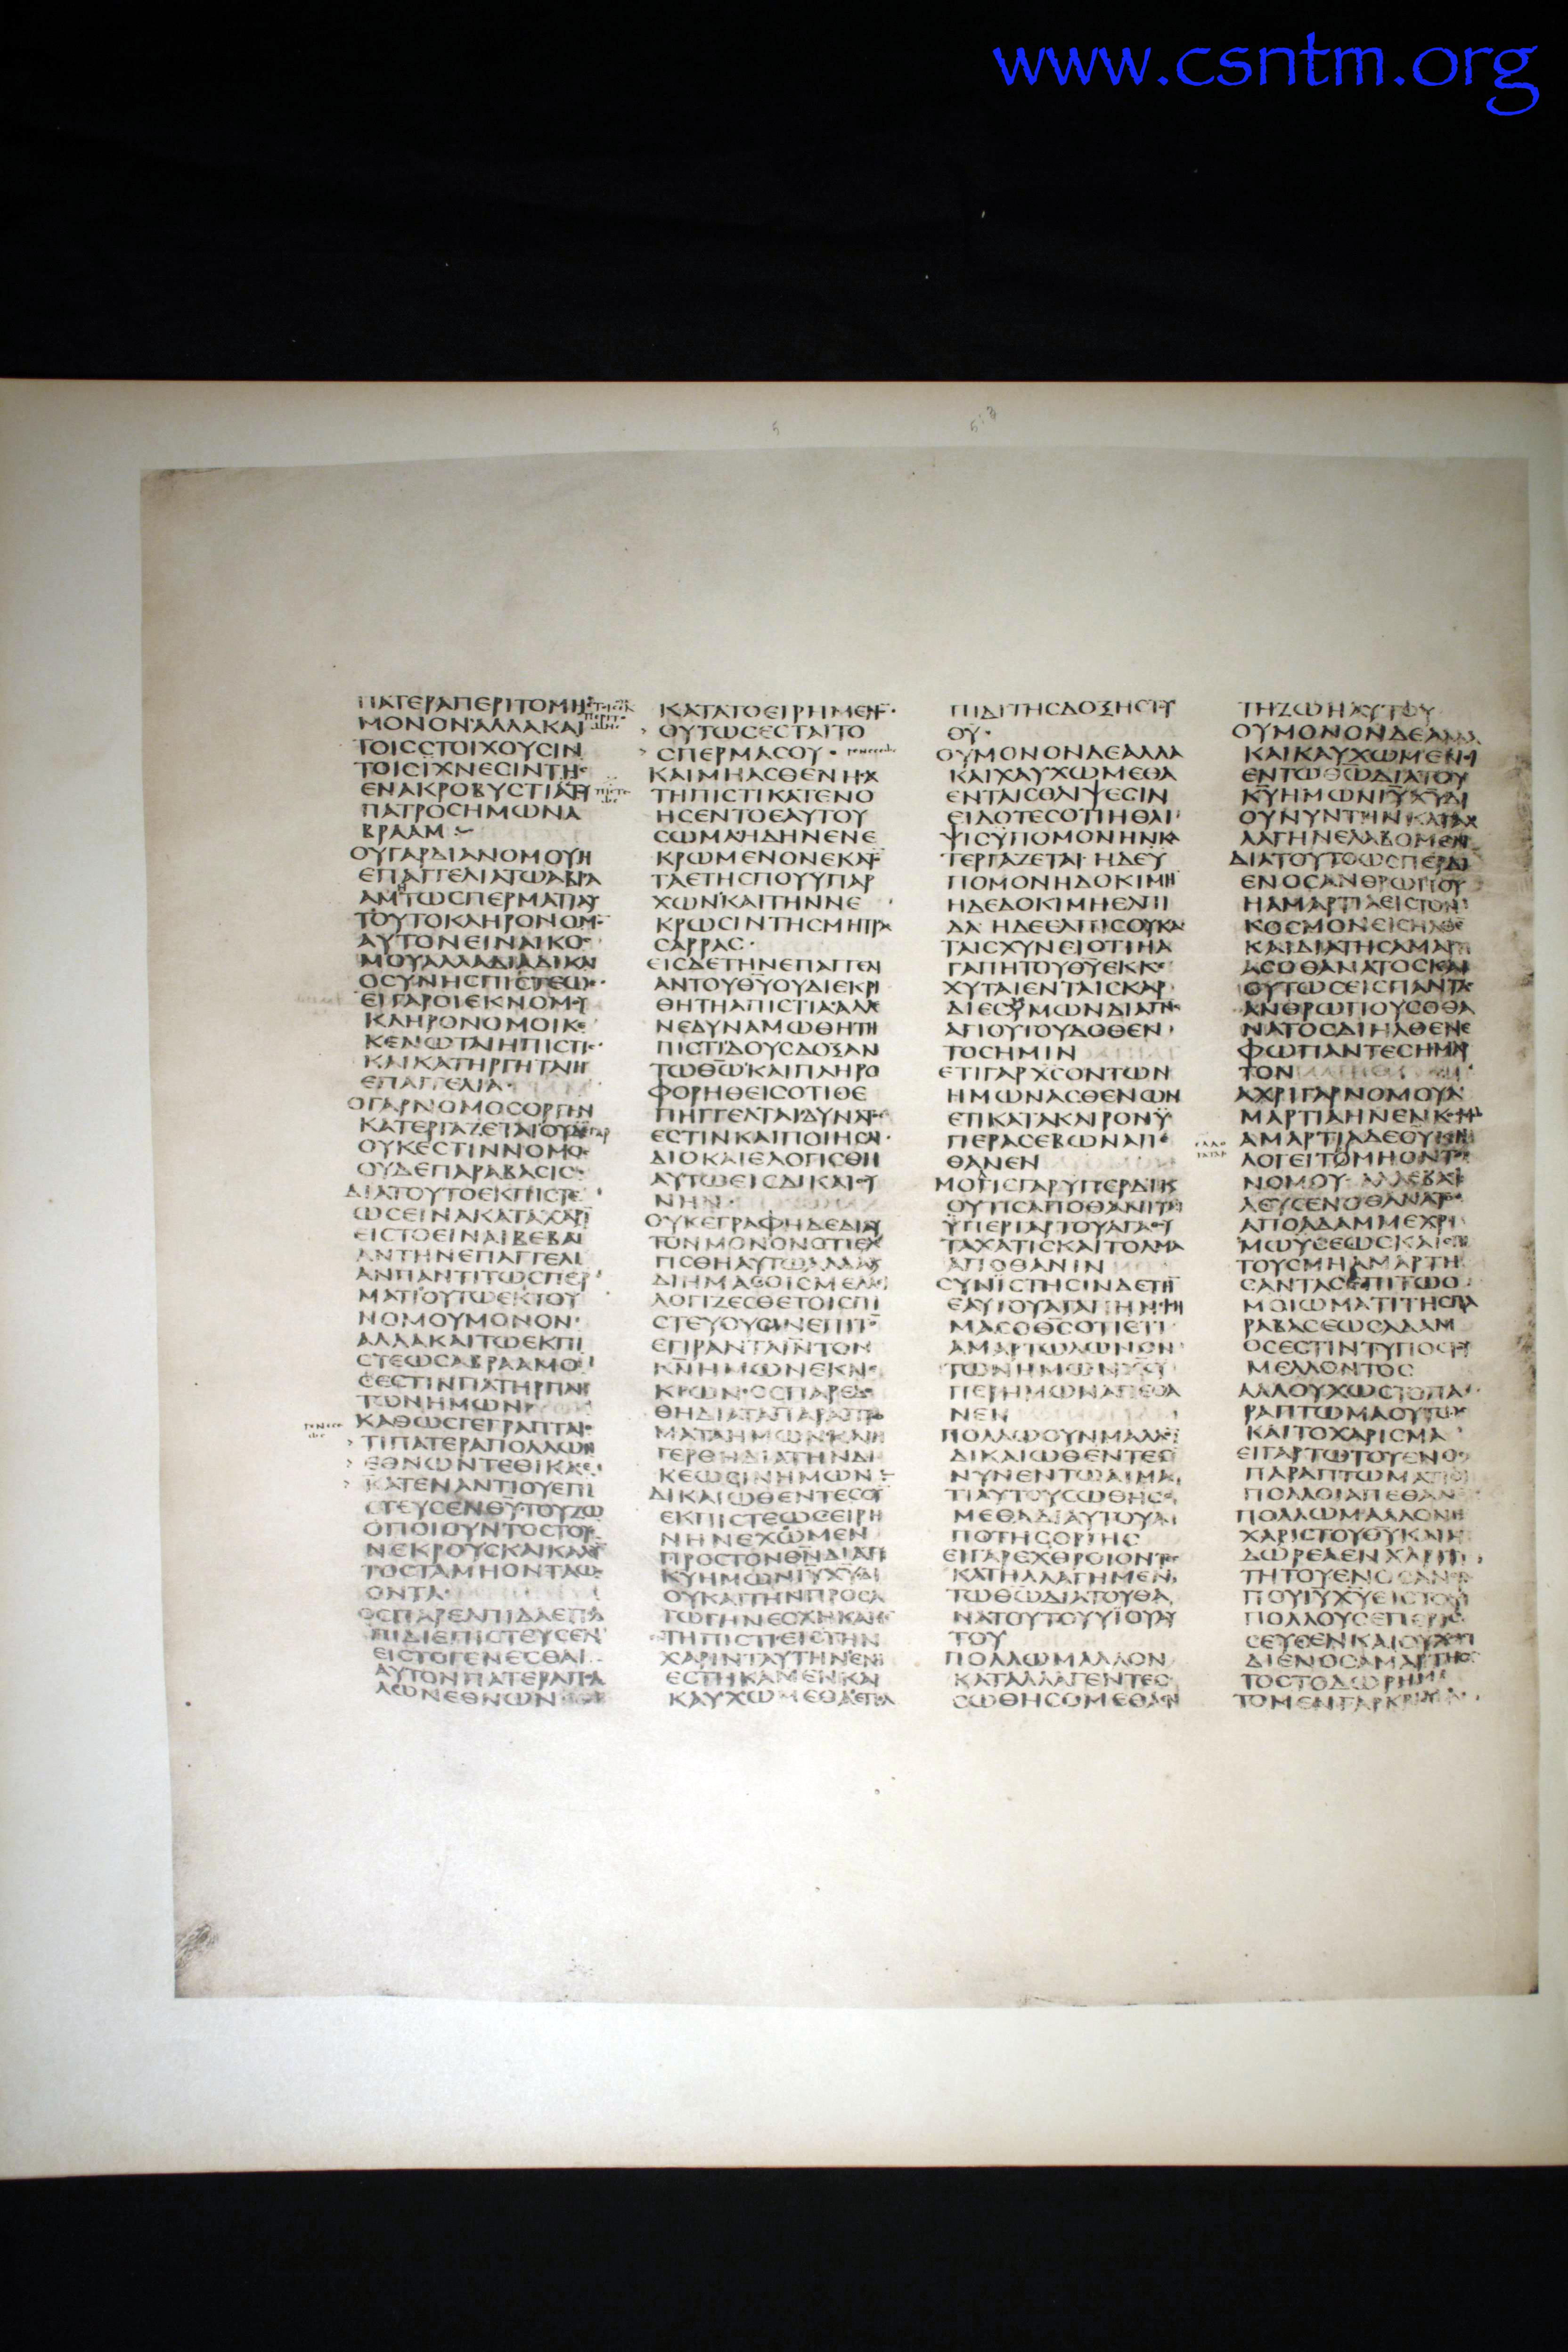 www.csntm.org
ΠΑΤΕΡΑΠΕΡΙΤΟΜΗ
ΜΟΝΟΝΑΛΛΑΚΑΙ
ΤΟΙϹϹΤΟΙΧΟΥϹΙΝ
ΤΟΙϹΙΧΝΕϹΙΝΤΗ
ΕΝΑΚΡΟΒΥϹΤΙΑ
ΠΑΤΡΟϹΗΜΩΝΑ
ΒΡΑΑΜ
ΟΥΓΑΡΔΙΑΝΟΜΟΥΗ
ΕΠΑΓΓΕΛΙΑΤΩΑΒΡΑ
ΑΜΗΤΩϹΠΕΡΜΑΤΙΑΥ
ΤΟΥΤΟΚΛΗΡΟΝΟΜ
ΑΥΤΟΝΕΙΝΑΙΚΟ
ΜΟΥΑΛΛΑΔΙΑΔΙΚΑΙ
ΟϹΥΝΗϹΠΙϹΤΕΩ
ΕΙΓΑΡΟΙΕΚΝΟΜΟΥ
ΚΛΗΡΟΝΟΜΟΙΚΕ
ΚΕΝΩΤΑΙΗΠΙϹΤΙ
ΚΑΙΚΑΤΗΡΓΗΤΑΙΗ
ΕΠΑΓΓΕΛΙΑ
ΟΓΑΡΝΟΜΟϹΟΡΓΗΝ
ΚΑΤΕΡΓΑΖΕΤΑΙΟΥ
ΟΥΚΕϹΤΙΝΝΟΜΟ
ΟΥΔΕΠΑΡΑΒΑϹΙϹ
ΔΙΑΤΟΥΤΟΕΚΠΙϹΤΕ
ΩϹΕΙΝΑΚΑΤΑΧΑΡΙ
ΕΙϹΤΟΕΙΝΑΙΒΕΒΑΙ
ΑΝΤΗΝΕΠΑΓΓΕΛΙ
ΑΝΠΑΝΤΙΤΩϹΠΕΡ
ΜΑΤΙΟΥΤΩΕΚΤΟΥ
ΝΟΜΟΥΜΟΝΟΝ
ΑΛΛΑΚΑΙΤΩΕΚΠΙ
ϹΤΕΩϹΑΒΡΑΑΜΟ
ϹΕϹΤΙΝΠΑΤΗΡΠΑΝ
ΤΩΝΗΜΩΝ
ΚΑΘΩϹΓΕΓΡΑΠΤΑΙ
ΤΙΠΑΤΕΡΑΠΟΛΛΩΝ
ΕΘΝΩΝΤΕΘΙΚΑϹΕ
ΚΑΤΕΝΑΝΤΙΟΥΕΠΙ
ϹΤΕΥϹΕΝΘΥΤΟΥΖΩ
ΟΠΟΙΟΥΝΤΟϹΤΟΥ
ΝΕΚΡΟΥϹΚΑΙΚΑΛΟΥ
ΤΟϹΤΑΜΗΟΝΤΑΩ
ΟΝΤΑ
ΟϹΠΑΡΕΛΠΙΔΑΕΠΕ
ΠΙΔΙΕΠΙϹΤΕΥϹΕΝ
ΕΙϹΤΟΓΕΝΕϹΘΑΙ
ΑΥΤΟΝΠΑΤΕΡΑΠΟ
ΛΩΝΕΘΝΩΝ
ΚΑΤΑΤΟΕΙΡΗΜΕΝ
ΟΥΤΩϹΕϹΤΑΙΤΟ
ϹΠΕΡΜΑϹΟΥ
ΚΑΙΜΗΑϹΘΕΝΗϹΑ
ΤΗΠΙϹΤΙΚΑΤΕΝΟ
ΗϹΕΝΤΟΕΑΥΤΟΥ
ϹΩΜΑΗΔΗΝΕΝΕ
ΚΡΩΜΕΝΟΝΕΚΑ
ΤΑΕΤΗϹΠΟΥΥΠΑΡ
ΧΩΝΚΑΙΤΗΝΝΕ
ΚΡΩϹΙΝΤΗϹΜΗΤΡΑ
ϹΑΡΡΑϹ
ΕΙϹΔΕΤΗΝΕΠΑΓΓΕΛΙ
ΑΝΤΟΥΘΥΟΥΔΙΕΚΡΙ
ΘΗΤΗΑΠΙϹΤΙΑΑΛΛΕ
ΝΕΔΥΝΑΜΩΘΗΤΗ
ΠΙϹΤΙΔΟΥϹΔΟΞΑΝ
ΤΩΘΩΚΑΙΠΛΗΡΟ
ΦΟΡΗΘΕΙϹΟΤΙΘΕ
ΠΗΓΓΕΛΤΑΙΔΥΝΑ
ΕϹΤΙΝΚΑΙΠΟΙΗϹΑΙ
ΔΙΟΚΑΙΕΛΟΓΙϹΘΗ
ΑΥΤΩΕΙϹΔΙΚΑΙΟϹΥ
ΝΗΝ
ΟΥΚΕΓΡΑΦΗΔΕΔΙΑΥ
ΤΟΝΜΟΝΟΝΟΤΙΕΛ
ΓΙϹΘΗΑΥΤΩΑΛΛΑΚ
ΔΙΗΜΑϹΟΙϹΜΕΛΛΙ
ΛΟΓΙΖΕϹΘΕΤΟΙϹΠΙ
ϹΤΕΥΟΥϹΙΝΕΠΙΤ
ΕΓΙΡΑΝΤΑΙΝΤΟΝ
ΚΝΗΜΩΝΕΚΝΕ
ΚΡΩΝΟϹΠΑΡΕΔ
ΘΗΔΙΑΤΑΠΑΡΑΠΤΩ
ΜΑΤΑΗΜΩΝΚΑΙΗ
ΓΕΡΘΗΔΙΑΤΗΝΔΙ
ΚΕΩϹΙΝΗΜΩΝ
ΔΙΚΑΙΩΘΕΝΤΕϹΟΥ
ΕΚΠΙϹΤΕΩϹΕΙΡΗ
ΝΗΝΕΧΩΜΕΝ
ΠΡΟϹΤΟΝΘΝΔΙΑΤΟΥ
ΚΥΗΜΩΝΙΥΧΥΔΙ
ΟΥΚΑΙΤΗΝΠΡΟϹΑ
ΓΩΓΗΝΕϹΧΗΚΑΜΕ
ΤΗΠΙϹΤΙΕΙϹΤΗΝ
ΧΑΡΙΝΤΑΥΤΗΝΕΝ
ΕϹΤΗΚΑΜΕΝΚΑΙ
ΚΑΥΧΩΜΕΘΑΕΠΕΛ
ΠΙΔΙΤΗϹΔΟΞΗϹΤΟΥ
ΘΥ
ΟΥΜΟΝΟΝΔΕΑΛΛΑ
ΚΑΙΚΑΥΧΩΜΕΘΑ
ΕΝΤΑΙϹΘΛΙΨΕϹΙΝ
ΕΙΔΟΤΕϹΟΤΙΗΘΛΙ
ΨΙϹΥΠΟΜΟΝΗΝΚΑ
ΤΕΡΓΑΖΕΤΑΙΗΔΕΥ
ΠΟΜΟΝΗΔΟΚΙΜΗ
ΗΔΕΔΟΚΙΜΗΕΛΠΙ
ΔΑΗΔΕΕΛΠΙϹΟΥΚΑ
ΤΑΙϹΧΥΝΕΙΟΤΙΗΑ
ΓΑΠΗΤΟΥΘΥΕΚΚΕ
ΧΥΤΑΙΕΝΤΑΙϹΚΑΡ
ΔΙΕϹΗΜΩΝΔΙΑΠΝ
ΑΓΙΟΥΤΟΥΔΟΘΕΝ
ΤΟϹΗΜΙΝ
ΕΤΙΓΑΡΧϹΟΝΤΩΝ
ΗΜΩΝΑϹΘΕΝΩΝ
ΕΤΙΚΑΤΑΚΑΙΡΟΝΥ
ΠΕΡΑϹΕΒΩΝΑΠΕ
ΘΑΝΕΝ
ΜΟΓΙϹΓΑΡΥΠΕΡΔΙΚ
ΟΥΤΙϹΑΠΟΘΑΝΙΤΑΙ
ΥΠΕΡΓΑΡΤΟΥΑΓΑΘΟΥ
ΤΑΧΑΤΙϹΚΑΙΤΟΛΜΑ
ΑΠΟΘΑΝΙΝ
ϹΥΝΙϹΤΗϹΙΝΔΕΤΗ
ΕΑΥΤΟΥΑΓΑΠΗΝΕΙϹΗ
ΜΑϹΟΘϹΟΤΙΕΤΙ
ΑΜΑΡΤΩΛΩΝΟΝ
ΤΩΝΗΜΩΝΧϹΥ
ΠΕΡΗΜΩΝΑΠΕΘΑ
ΝΕΝ
ΠΟΛΛΩΟΥΝΜΑΛΛΟ
ΔΙΚΑΙΩΘΕΝΤΕϹ
ΝΥΝΕΝΤΩΑΙΜΑ
ΤΙΑΥΤΟΥϹΩΘΗϹΟ
ΜΕΘΑΔΙΑΥΤΟΥΑ
ΠΟΤΗϹΟΡΓΗϹ
ΕΙΓΑΡΕΧΘΡΟΙΟΝΤΕϹ
ΚΑΤΗΛΛΑΓΗΜΕΝ
ΤΩΘΩΔΙΑΤΟΥΘΑ
ΝΑΤΟΥΤΟΥΥΙΟΥΑΥ
ΤΟΥ
ΠΟΛΛΩΜΑΛΛΟΝ
ΚΑΤΑΛΛΑΓΕΝΤΕϹ
ϹΩΘΗϹΟΜΕΘΑΕΝ
ΤΗΖΩΗΑΥΤΟΥ
ΟΥΜΟΝΟΝΔΕΑΛΛΑ
ΚΑΙΚΑΥΧΩΜΕΝΟΙ
ΕΝΤΩΘΩΔΙΑΤΟΥ
ΚΥΗΜΩΝΙΥΧΥΔΙ
ΟΥΝΥΝΤΗΝΚΑΤΑΛ
ΛΑΓΗΝΕΛΑΒΟΜΕΝ
ΔΙΑΤΟΥΤΟΩϹΠΕΡΔΙ
ΕΝΟϹΑΝΘΡΩΠΟΥ
ΗΑΜΑΡΤΙΑΕΙϹΤΟΝ
ΚΟϹΜΟΝΕΙϹΗΛΘΕ
ΚΑΙΔΙΑΤΗϹΑΜΑΡΤΙ
ΑϹΟΘΑΝΑΤΟϹΚΑΙ
ΟΥΤΩϹΕΙϹΠΑΝΤΑ
ΑΝΘΡΩΠΟΥϹΟΘΑ
ΝΑΤΟϹΔΙΗΛΘΕΝΕ
ΦΩΠΑΝΤΕϹΗΜΑΡ
ΤΟΝ
ΑΧΡΙΓΑΡΝΟΜΟΥΑ
ΜΑΡΤΙΑΗΝΕΝΚΟϹΜΩ
ΑΜΑΡΤΙΑΔΕΟΥΚ
ΛΟΓΕΙΤΟΜΗΟΝΤΟϹ
ΝΟΜΟΥΑΛΛΕΒΑϹΙ
ΛΕΥϹΕΝΟΘΑΝΑΤΟϹ
ΑΠΟΑΔΑΜΜΕΧΡΙ
ΜΩΥϹΕΩϹΚΑΙΕΠΙ
ΤΟΥϹΜΗΑΜΑΡΤΗ
ϹΑΝΤΑϹΕΠΙΤΩΟ
ΜΟΙΩΜΑΤΙΤΗϹΠΑ
ΡΑΒΑϹΕΩϹΑΔΑΜ
ΟϹΕϹΤΙΝΤΥΠΟϹΤΟΥ
ΜΕΛΛΟΝΤΟϹ
ΑΛΛΟΥΧΩϹΤΟΠΑ
ΡΑΠΤΩΜΑΟΥΤΩϹ
ΚΑΙΤΟΧΑΡΙϹΜΑ
ΕΙΓΑΡΤΩΤΟΥΕΝΟϹ
ΠΑΡΑΠΤΩΜΑΤΙΟΙ
ΠΟΛΛΟΙΑΠΕΘΑΝ
ΠΟΛΛΩΜΑΛΛΟΝΗ
ΧΑΡΙϹΤΟΥΘΥΚΑΙΗ
ΔΩΡΕΑΕΝΧΑΡΙΤΙ
ΤΗΤΟΥΕΝΟϹΑΝΘΡΩ
ΠΟΥΙΥΧΥΕΙϹΤΟΥϹ
ΠΟΛΛΟΥϹΕΠΕΡΙϹ
ϹΕΥϹΕΝΚΑΙΟΥΧΩϹ
ΔΙΕΝΟϹΑΜΑΡΤΗϹΑ
ΤΟϹΤΟΔΩΡΗΜΑ
ΤΟΜΕΝΓΑΡΚΡΙΜΑ